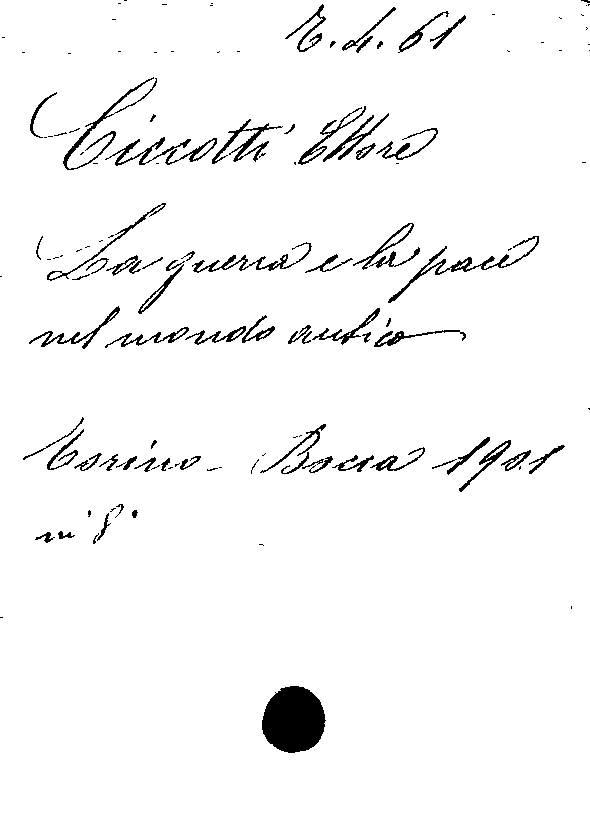 E.4.61
Ciccotti Ettore
La guerra e la pace
nel mondo antico
Torino - Bocca 1901
in 8°